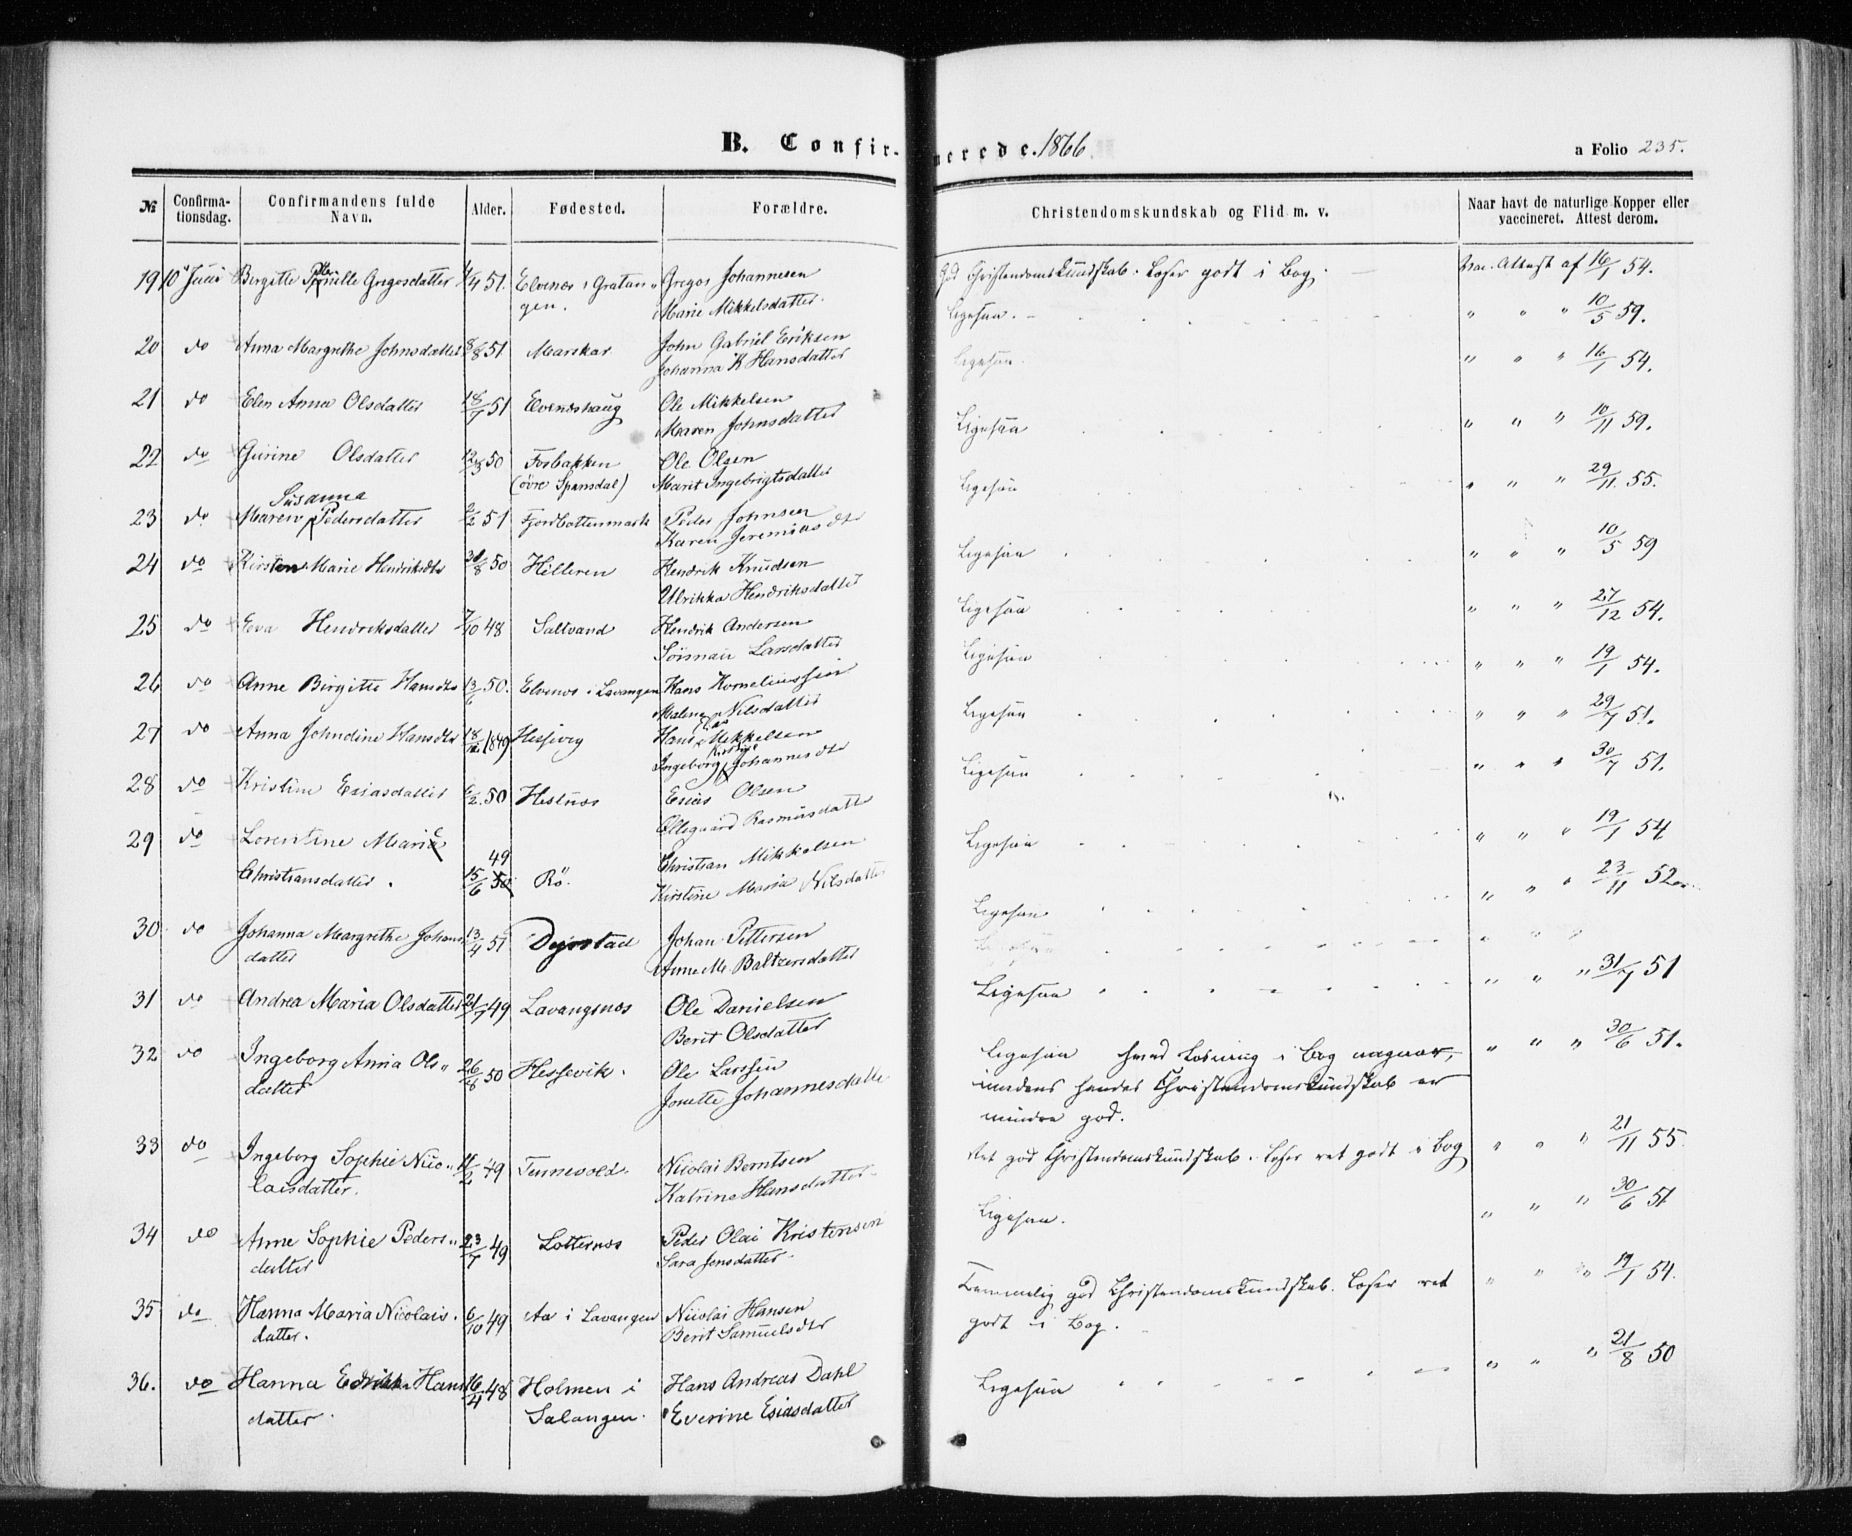 B. Confirmerede. 1866
a Folio 235.
№ Confirmationsdag. Confirmandens fulde Navn. Alder. Fødested. Forældre. Christendomskundskab og Flid m. v. Naar havt de naturlige Kopper eller vaccineret. Attest derom.
19 10 Juni Birgitte Gregosdatter 51. Elvenes i Gratan- Gregos Johannesen god Christendomskundskab. Læser godt i Bog. Vac. Attest af 16/1 54.
gen. Marie Mikkelsdatter.
20 do Anna Margrethe Johnsdatter 8/8 51 Marskar John Gabriel Eriksen Ligesaa. " " " 10/5 59.
Johanna K Hansdatter
21 do Elen Anna Olsdatter 18/7 51 Elvenæshaug Ole Mikkelsen Ligesaa. " " " 16/1 54.
Maren Johnsdatter
22 do Gurine Olsdatter 50 Fosbakken Ole Olsen Ligesaa " " " 10/11 59.
(øvre Spansdal) Marit Ingebrigtsdatter
Susanna
23 do Maren Pedersdatter 51 Fjordbottenmark Peder Johnsen Ligesaa " " " 29/11. 55.
Karen Jeremias dtr
24 do Kirsten Marie Henriksdtr 31/8 50 Hilleren Hendrik Knudsen Ligesaa " " " 10/5 59
Ulrikka Hendriksdatter
25 do Eva Hendriksdatter 7/10 48 Saltvand Hendrik Andersen Ligesaa " " " 27/12 54.
Larsdatter
26 do Anne Birgitte Hansdtr 13/6 50. Elvenes i Lavangen Hans Korneliussen Ligesaa " " " 19/1 54.
Malena Nilsdatter
27 do Anna Johndine Hansdtr 1849 Hessevig Hans Mikkelsen Ligesaa " " " 29/7 51.
Ingeborg Johannesdtr
28 do Kristine Esiasdatter 50 Hestnes Esias Olsen Ligesaa " " " 30/7 51.
Ollegaard Rasmusdatter
29 do Lorentine Marie Ligesaa " " " 19/1 54
Christiansdatter. 15/6 49 Rö. Christian Mikkelsen
Kirstine Maria Nilsdatter Ligesaa " " " 23/11 52
30 do Johanna Margrethe Johans 13/4 51 Dyrstad Johan Pettersen Ligesaa " " "
datter Anne M. Baltzersdatter
31 do Andrea Maria Olsdatter 21/7 49 Lavangsnæs Ole Danielsen Ligesaa " " " 31/7 51
Berit Olsdatter
32 do Ingeborg Anna Ols- 26/8 50 Hessevik. Ole Larssen Ligesaa hvad Læsning i Bog angaar, " " " 30/6 51.
datter Jonette Johannesdatter imedens hendes Christendomskundskab er
mindre god.
33 do Ingeborg Sophie Nico- 49 Tennevold. Nicolai Berntsen Ret god Christendomskundskab. Læser ret godt i Bog " " " 21/11 55.
laisdatter. Katrine Hansdatter.
34 do Anne Sophie Peders- 23/7 49 Lotternæs Peder Olai Kristensen Ligesaa. " " " 30/6 51
datter Sara Jensdatter.
35 do Hanna Maria Nicolais- 6/10 49 Aa i Lavangen Nicolai Hansen Temmelig god Christendomskundskab. Læser ret " " " 19/1 54.
datter. Berit Samuelsdtr godt i Bog.
36. do Hanna Hans 16/4 48 Holmen i Hans Andreas Dahl Ligesaa " " " 21/8 50
datter. Salangen. Everine Esiasdatter